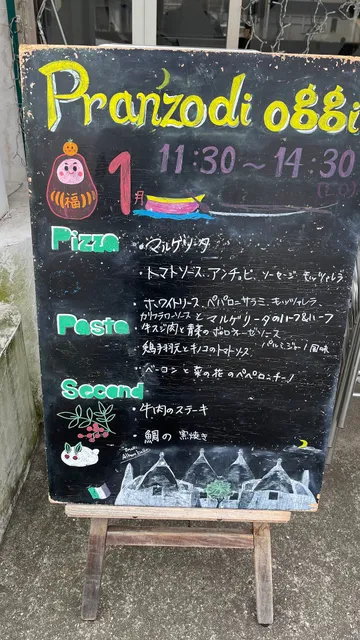 Pranzo di oggi
福
1月
11:30～14:30
Pizza
・マルゲリータ
・トマトソース、アンチョビ、ソーセージ、モッツァレラ
・ホワイトソース、ペパロニサラミ、モッツァレラ、
カリフラワーソースとマルゲリータのハーフ&ハーフ
Pasta
・牛スジ肉と青菜のボロネーゼソース
パルミジャーノ風味
・鶏手羽元とキノコのトマトソース
・ベーコンと菜の花のペペロンチーノ
Second
・牛肉のステーキ
・鯛の窯焼き